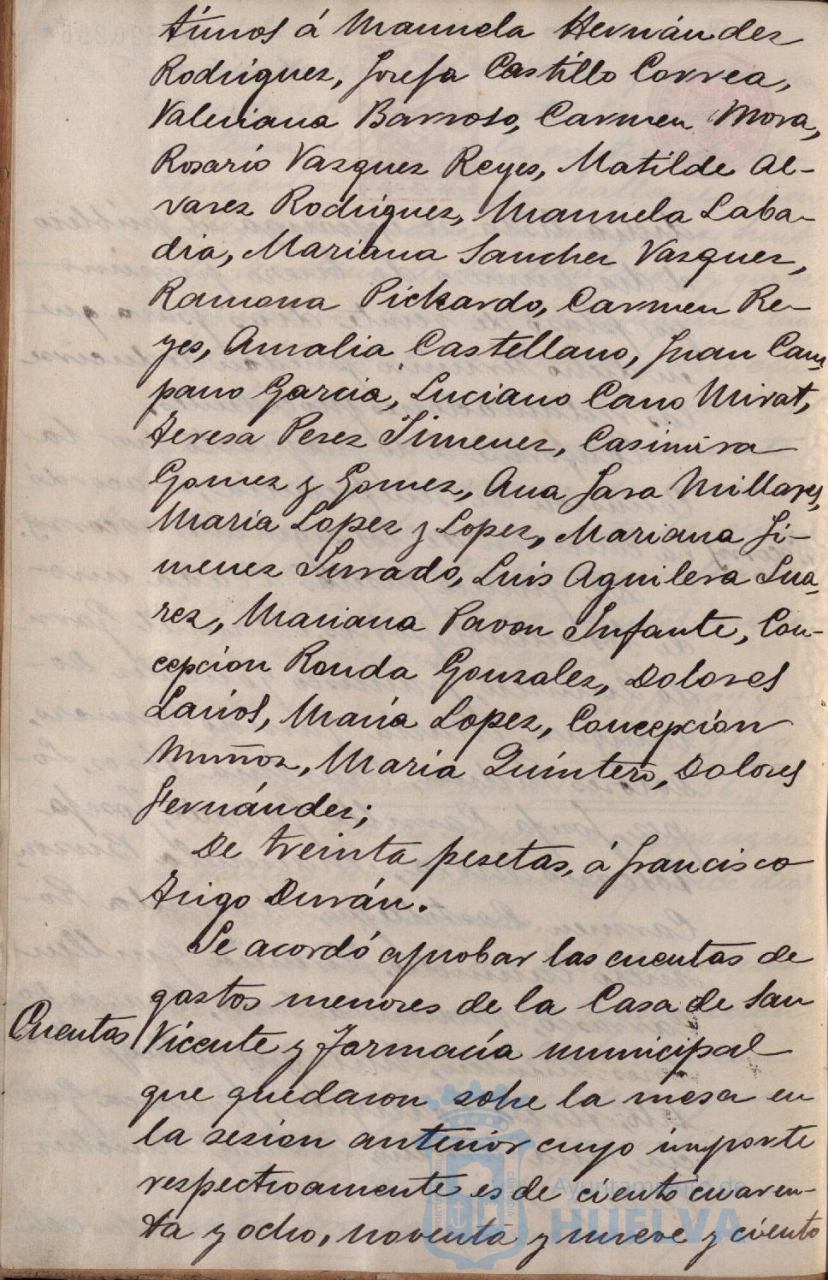 timos á Manuela Hernández
Rodriguez, Josefa Castillo Correa,
Valeriana Barroso, Carmen Mora,
Rosario Vazquez Reyes, Matilde Al-
varez Rodriguez, Manuela Laba-
dia, Mariana Sanchez Vazquez,
Ramona Pickardo, Carmen Re-
yes, Amalia Castellano, Juan Cam
pano Garcia, Luciano Cano Mirat,
Teresa Perez Jimenez, Casimira
Gomez y Gomez, Ana Jara Millares,
Maria Lopez y Lopez, Mariana Ji-
menez Jurado, Luis Aguilera Sua,
rez, Mariana Pavon Infante, Con-
cepcion Ronda Gonzalez, Dolores
Larios, María Lopez, Concepcion
Muñoz, Maria Quintero, Dolores
Fernández;
De treinta pesetas, á Francisco
Trigo Durán.
Se acordó aprobar las cuentas de
gastos menores de la Casa de San
Cuentas Vicente y Farmacía municipal
que quedaron sobre la mesa en
la sesion anterior cuyo importe
respectivamente es de ciento cuaren-
ta y ocho, noventa y nueve y ciento
Ayuntamiento de
HUELVA